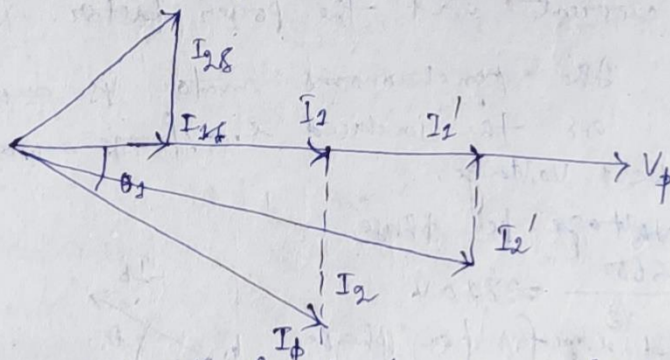 I₂s
I₁s
I₁
I₁'
Vₚ
θ₁
I₂'
I₂
Iϕ